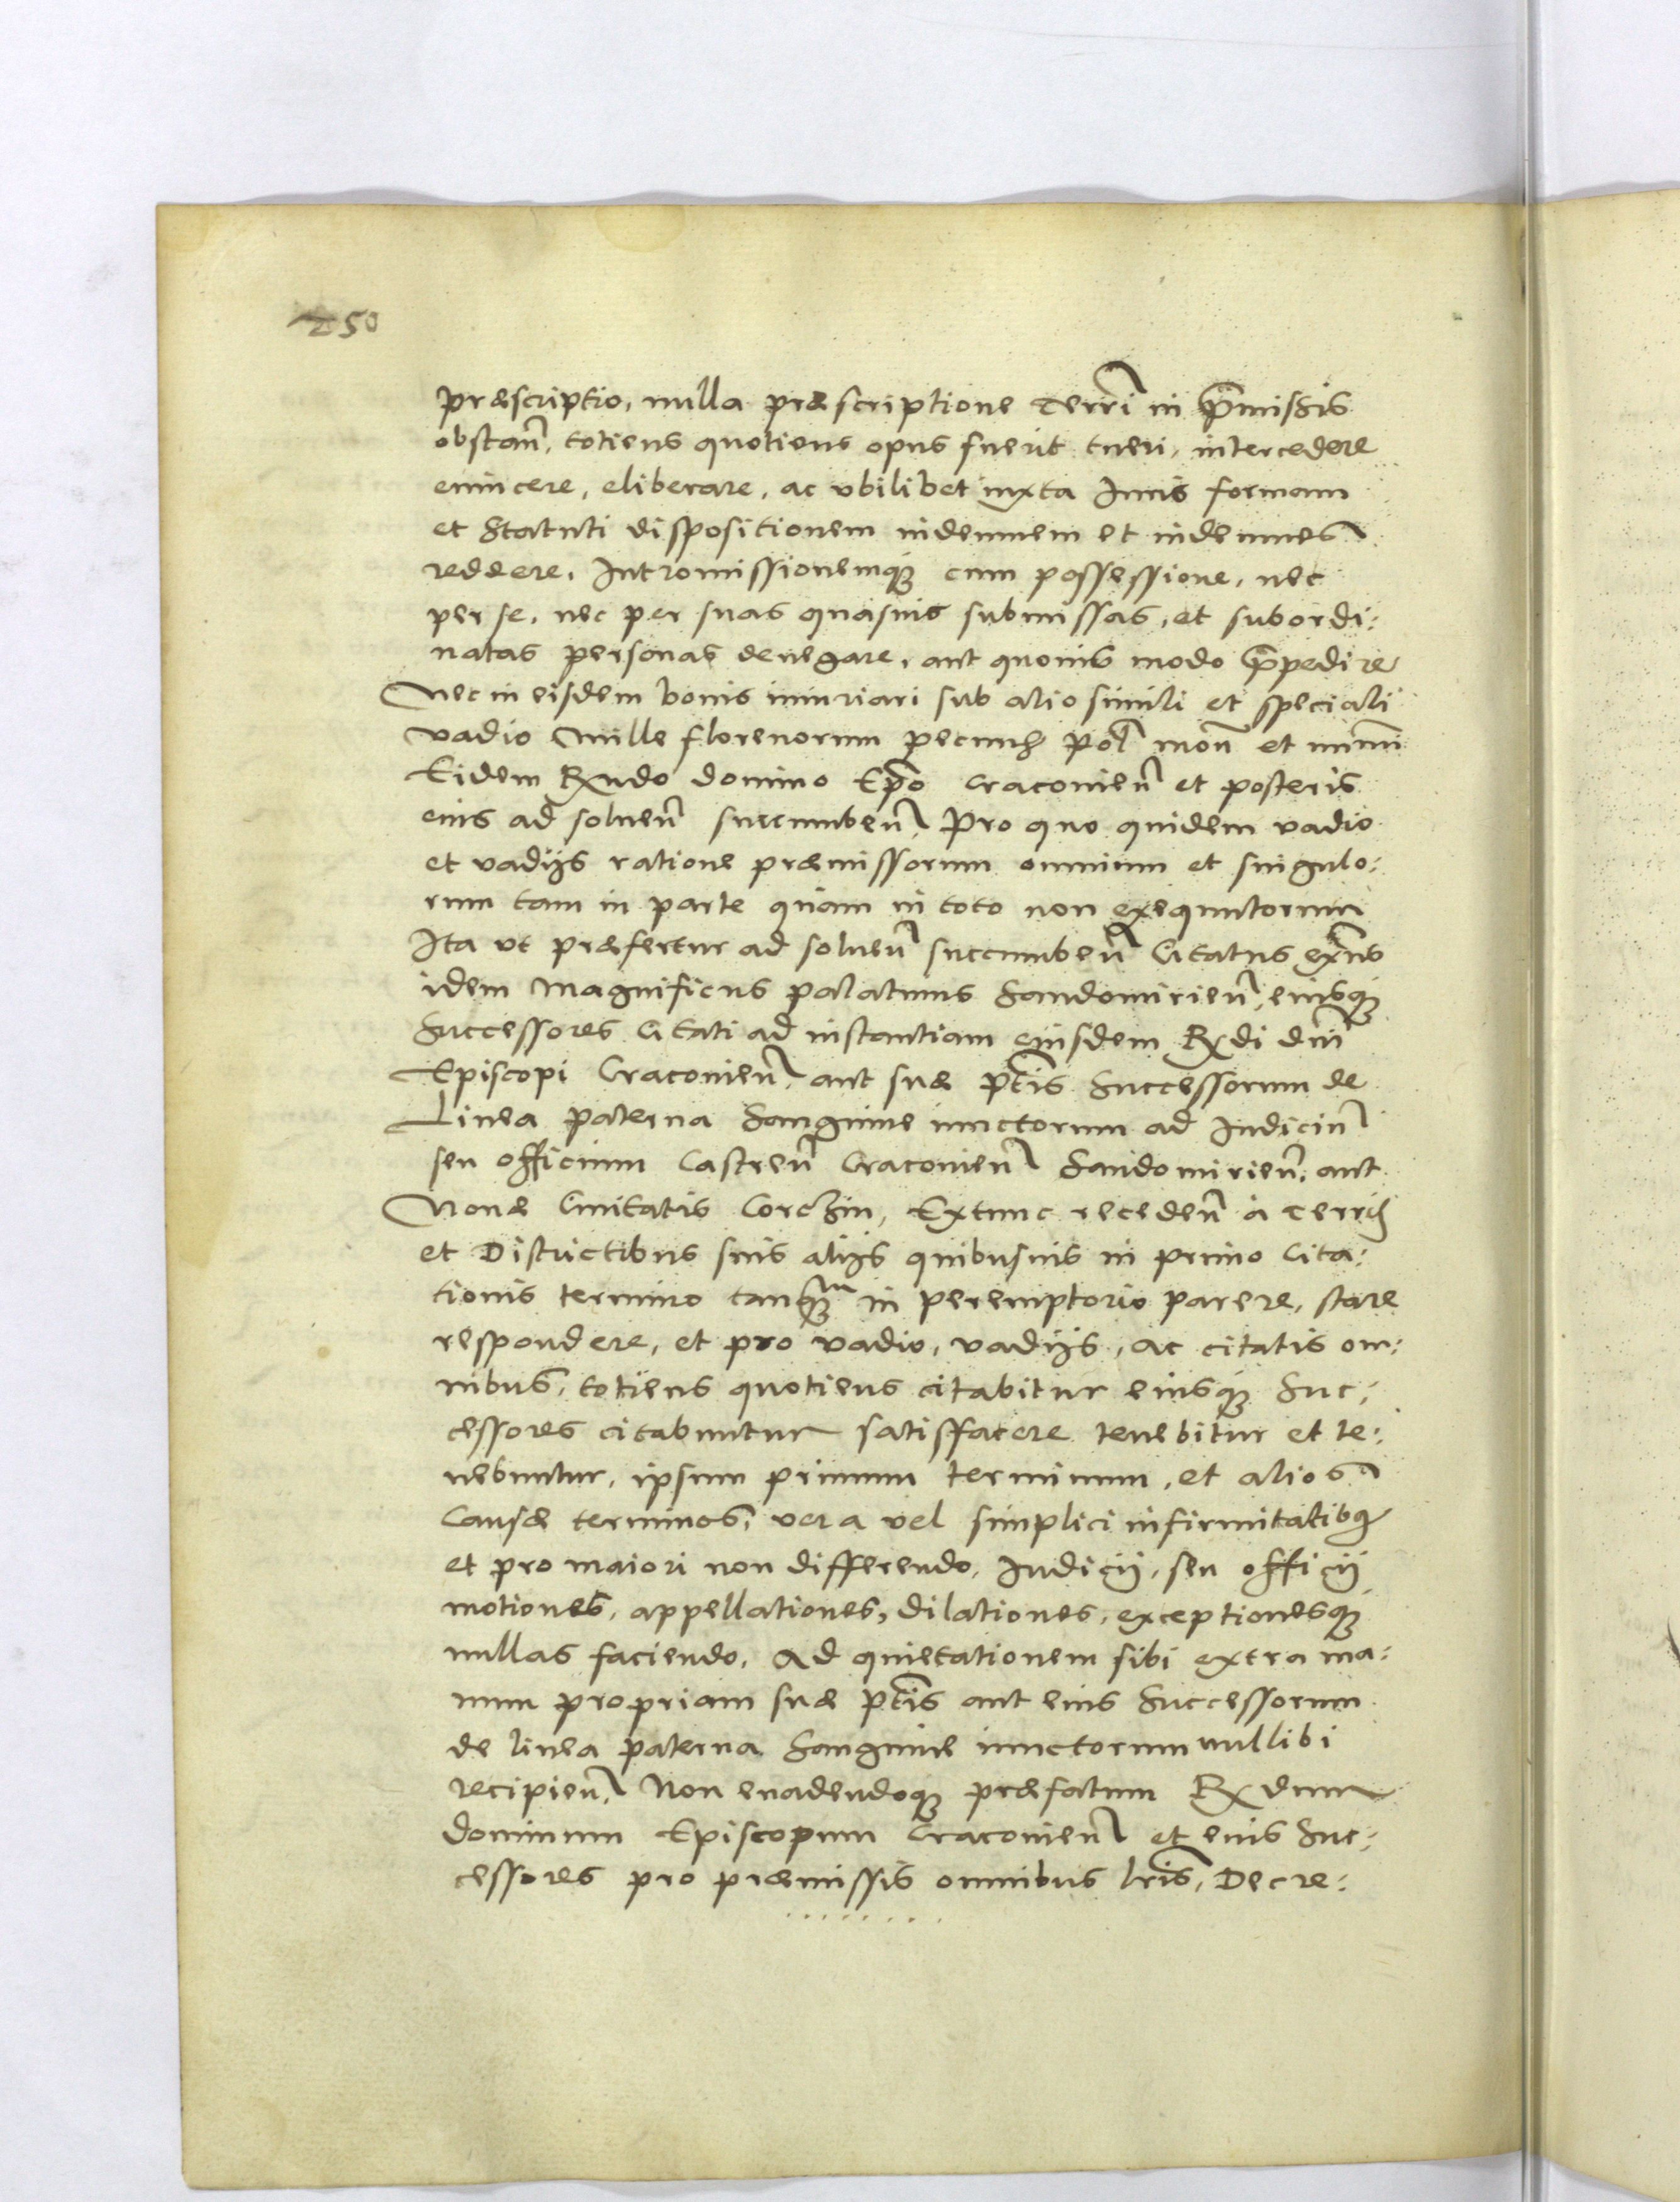 250
præscriptio, nulla præscriptione terri in pmissis
obstan, totiens quotiens opus fuerit tueri, intercedere
euincere, eliberare, ac vbilibet iuxta Iuris formam
et Statuti dispositionem indemnem et indemnes
reddere, Intromissionemq; cum possessione, nec
per se, nec per suas quasuis submissas, et subordi:
natas personas denegare, aut quouis modo ppedire
Nec in eisdem bonis iniuriari sub alio simili et speciali
vadio Mille florenorum pecuniæ Pol mon et numi
Eidem Rndo domino Epo Cracouien et posteris
eius ad soluen succumben, Pro quo quidem vadio
et vadijs ratione præmissorum omnium et singulo:
rum tam in parte quam in toto non exequutorum
Ita vt præfertur ad soluen succumben Citatus exns
idem Magnificus palatinus Sandomirien, eiusq;
Successores Citati ad instantiam eiusdem Rdi dni
Episcopi Cracouien, aut suæ ptis Successorum de
Linea paterna Sanguine iunctorum ad Iudiciu
seu officium Castren Cracouien Sandomirien, aut
Nouæ Ciuitatis Corczin, Extunc receden à terris
et Districtibus suis alijs quibusuis in primo Cita:
tionis termino tanqm in peremptorio parere, stare
respondere, et pro vadio, vadijs, ac citatis om:
nibus, totiens quotiens citabitur eiusq; Suc:
cessores citabuntur satisfacere tenebitur et te:
nebuntur, ipsum primum terminum, et alios
Causæ terminos, vera vel simplici infirmitatibq
et pro maiori non differendo, Iudicij, seu officij
motiones, appellationes, dilationes, exceptionesq;
nullas faciendo, Ad quietationem sibi extra ma:
num propriam suæ ptis aut eius Successorum
de linea paterna Sanguine iunctorum nullibi
recipien, Non euadendoq; præfatum Rdum
dominum Episcopum Cracouien et eius Suc:
cessores pro præmissis omnibus lris, Decre: